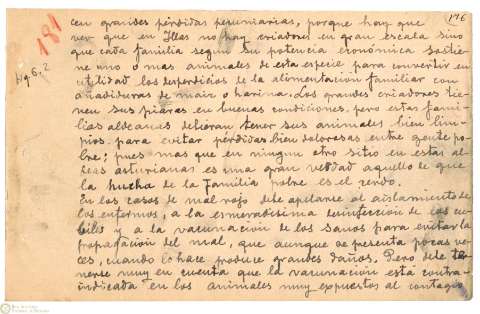 176
181
Hg 6,2
cen grandes pérdidas pecuniarias, porque hay que
ver que en Illas no hay criadores en gran escala sino
que cada familia segun su potencia económica sostie-
ne uno o mas animales de esta especie para convertir en
utilidad los desperdicios de la alimentacion familiar con
añadiduras de maiz o harina. Los grandes criadores tie-
nen sus piaras en buenas condiciones pero estas fami-
lias aldeanas debieran tener sus animales bien lim-
pios para evitar pérdidas bien dolorosas entre gente po-
bre; pues mas que en ningun otro sitio en estas al-
deas asturianas es una gran verdad aquello de que
la hucha de la familia pobre es el cerdo.
En los casos de mal rojo debe apelarse al aislamiento de
los enfermos, a la esmeradisima desinfeccion de los cu-
biles y a la vacunacion de los sanos para evitar la
propagacion del mal, que aunque se presenta pocas ve-
ces, cuando lo hace produce grandes daños. Pero debe te-
nerse muy en cuenta que la vacunacion está contra-
indicada en los animales muy expuestos al contagio